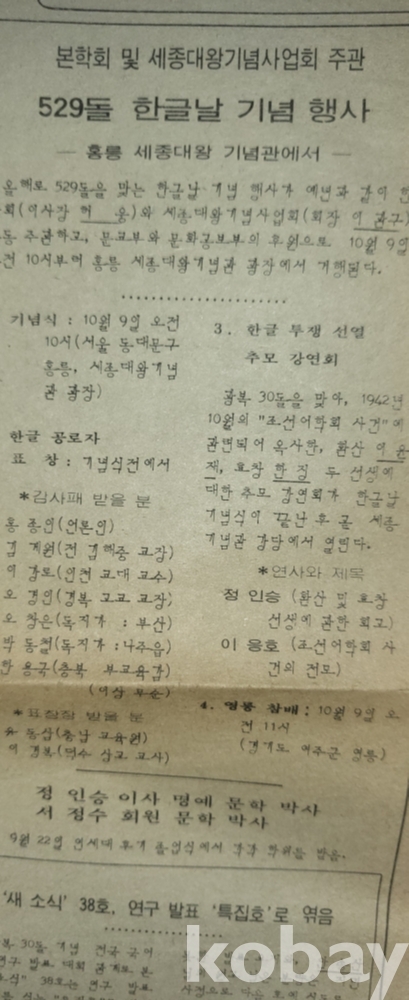 본학회 및 세종대왕기념사업회 주관
529돌 한글날 기념 행사
— 홍릉 세종대왕 기념관에서 —
올해로 529돌을 맞는 한글날 기념 행사가 예년과 같이 한
회(이사장 허 웅)와 세종대왕기념사업회(회장 이 관구)
동 주관하고, 문교부와 문화공보부의 후원으로 10월 9일
전 10시부터 홍릉 세종대왕기념관 광장에서 거행된다.
기념식 : 10월 9일 오전
10시(서울 동대문구
홍릉, 세종대왕기념
관 광장)
한글 공로자
표 창 : 기념식전에서
*감사패 받을 분
홍 종인(언론인)
김 계원(전 김해중 교장)
이 강로(인천 교대 교수)
오 경인(경복 고교 교장)
오 창은(독지가 : 부산)
박 동철(독지가 : 나주읍)
한 용국(충북 부교육감)
(이상 무순)
*표창장 받을 분
동삼(충남 교육원)
이 경복(덕수 상고 교사)
3. 한글 투쟁 선열
추모 강연회
광복 30돌을 맞아, 1942년
10월의 "조선어학회 사건"에
관련되어 옥사한, 환산 이 윤
재, 효창 한 징 두 선생에
대한 추모 강연회가 한글날
기념식이 끝난 후 곧 세종
기념관 강당에서 열린다.
*연사와 제목
정 인승 (환산 및 효창
선생에 관한 회고)
이 응호 (조선어학회 사
건의 전모)
4. 영릉 참배 : 10월 9일 오
전 11시
(경기도 여주군 영릉)
정 인승 이사 명예 문학 박사
서 정수 회원 문학 박사
9월 22일 연세대 후기 졸업식에서 각각 학위를 받음.
'새 소식' 38호, 연구 발표 '특집호'로 엮음
복 30돌 기념 전국 국어
연구 발표 대회 관계로 본
소식" 38호는 연구 발표
kobay